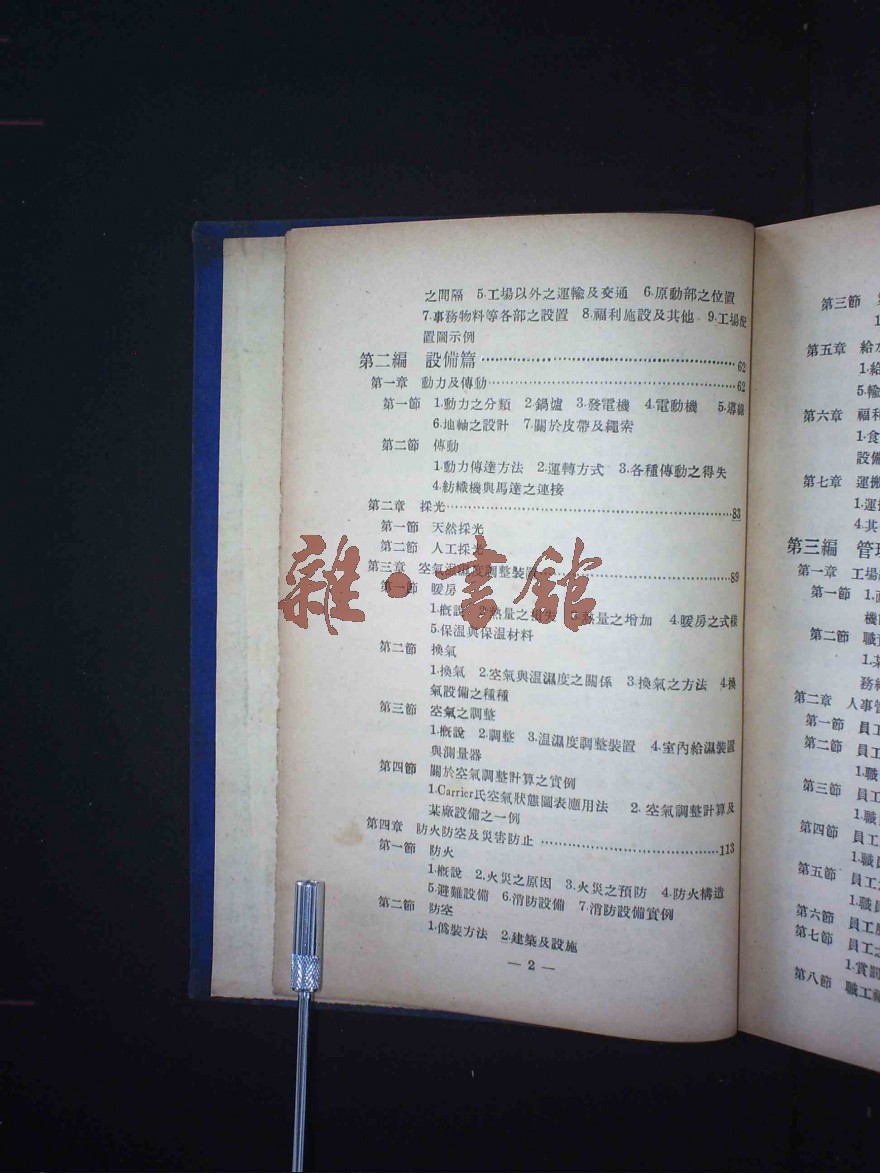 之間隔 5.工場以外之運輸及交通 6.原動部之位置
7.事務物料等各部之設置 8.福利施設及其他 9.工場配
置圖示例
第二編 設備篇 62
第一章 動力及傳動 62
第一節 1.動力之分類 2.鍋爐 3.發電機 4.電動機 5.導線
6.地軸之設計 7.關於皮帶及繩索
第二節 傳動
1.動力傳達方法 2.運轉方式 3.各種傳動之得失
4.紡織機與馬達之連接
第二章 採光 83
第一節 天然採光
第二節 人工採光
第三章 空氣溫濕度調整裝置 89
第一節 暖房
1.概說 2.熱量之損失 3.熱量之增加 4.暖房之式樣
5.保溫與保溫材料
第二節 換氣
1.換氣 2.空氣與溫濕度之關係 3.換氣之方法 4.換
氣設備之種種
第三節 空氣之調整
1.概說 2.調整 3.溫濕度調整裝置 4.室內給濕裝置
與測量器
第四節 關於空氣調整計算之實例
1.Carrier氏空氣狀態圖表應用法 2.空氣調整計算及
某廠設備之一例
第四章 防火防空及災害防止 113
第一節 防火
1.概說 2.火災之原因 3.火災之預防 4.防火構造
5.避難設備 6.消防設備 7.消防設備實例
第二節 防空
1.偽裝方法 2.建築及設施
— 2 —
雜·書館
第三節
第五章 給
第六章 福利
1.食
設備
第七章 運搬
1.運
4.其
第三編 管理
第一章 工場
第一節
第二節 職
務
第二章 人事管
第一節 員工
第二節 員工
1.職
第三節 員工
1.職
第四節 員工
1.職員
第五節 員工
1.職員
第六節 員工
第七節 員工之
1.賞罰
第八節 職工